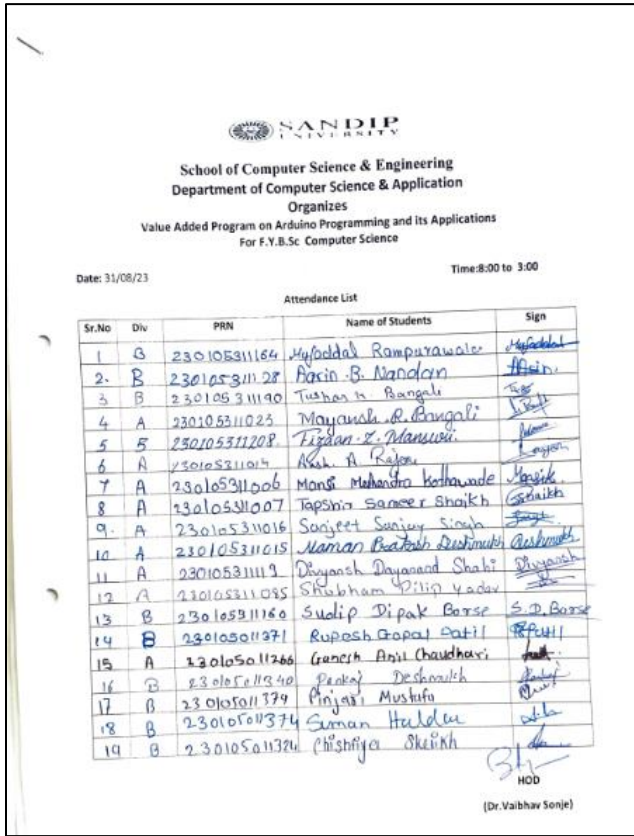 SANDIP
UNIVERSITY
School of Computer Science & Engineering
Department of Computer Science & Application
Organizes
Value Added Program on Arduino Programming and its Applications
For F.Y.B.Sc Computer Science
Date: 31/08/23 Time:8:00 to 3:00
Attendance List
Sr.No Div PRN Name of Students Sign
1 B 230105311164 Rampurawala
2. B 230105311128 B. Nandan
3 B 230105311190 Tushar Bangali
4 A 230105311023 Mayansh R. Bangali
5 B 230105311208 Fizaan Z. Mansuri.
6 A 230105311014 A
7 A 230105311006 Mansi Mahendra Kothawade
8 A 230105311007 Sameer Shaikh Shaikh
9. A 230105311016 Sanjeet Sanjay Singh
10 A 230105311015 Naman Prakash Deshmukh Deshmukh
11 A 230105311119 Divyansh Dayanand Shahi Divyansh
12 A 230105311085 Shubham Dilip Yadav
13 B 230105311160 Sudip Dipak Borse S.D. Borse
14 B 230105011371 Rupesh Gopal Patil
15 A 230105011266 Ganesh Anil Chaudhari
16 B 230105011340 Pankaj Deshmukh
17 B 230105011379 Pinjari Mustafa
18 B 230105011374 Suman
19 B 230105011324 Chishtiya
HOD
(Dr.Vaibhav Sonje)